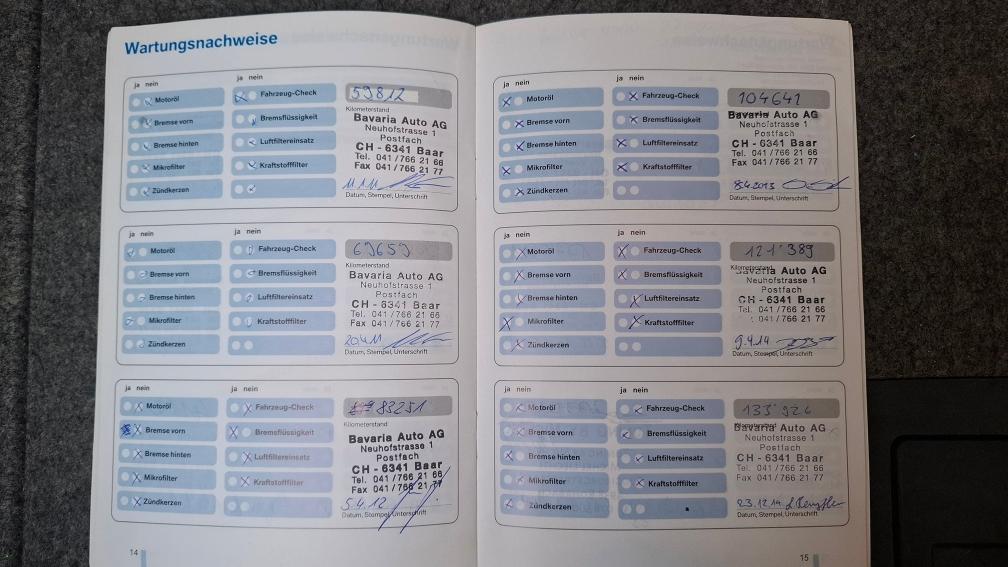 Wartungsnachweise
ja nein ja nein
Motoröl Fahrzeug-Check 59812
Kilometerstand
Bremse vorn Bremsflüssigkeit
Bremse hinten Luftfiltereinsatz
Mikrofilter Kraftstofffilter
Zündkerzen
Bavaria Auto AG
Neuhofstrasse 1
Postfach
CH - 6341 Baar
Tel. 041/766 21 66
Fax 041/766 21 77
Datum, Stempel, Unterschrift
ja nein ja nein
Motoröl Fahrzeug-Check 69659
Kilometerstand
Bremse vorn Bremsflüssigkeit
Bremse hinten Luftfiltereinsatz
Mikrofilter Kraftstofffilter
Zündkerzen
Bavaria Auto AG
Neuhofstrasse 1
Postfach
CH - 6341 Baar
Tel. 041/766 21 66
Fax 041/766 21 77
Datum, Stempel, Unterschrift
ja nein ja nein
Motoröl Fahrzeug-Check 83251
Kilometerstand
Bremse vorn Bremsflüssigkeit
Bremse hinten Luftfiltereinsatz
Mikrofilter Kraftstofffilter
Zündkerzen
Bavaria Auto AG
Neuhofstrasse 1
Postfach
CH - 6341 Baar
Tel. 041/766 21 66
Fax 041/766 21 77
5.4.12
Datum, Stempel, Unterschrift
14
ja nein ja nein
Motoröl Fahrzeug-Check 104641
Bremse vorn Bremsflüssigkeit
Bremse hinten Luftfiltereinsatz
Mikrofilter Kraftstofffilter
Zündkerzen
Bavaria Auto AG
Neuhofstrasse 1
Postfach
CH - 6341 Baar
Tel. 041/766 21 66
Fax 041/766 21 77
8.4.2013
Datum, Stempel, Unterschrift
ja nein ja nein
Motoröl Fahrzeug-Check 121'389
Kilometerstand
Bremse vorn Bremsflüssigkeit
Bremse hinten Luftfiltereinsatz
Mikrofilter Kraftstofffilter
Zündkerzen
Bavaria Auto AG
Neuhofstrasse 1
Postfach
CH - 6341 Baar
041/766 21 66
041/766 21 77
9.4.14
Datum, Stempel, Unterschrift
ja nein ja nein
Motoröl Fahrzeug-Check 133'926
Kilometerstand
Bremse vorn Bremsflüssigkeit
Bremse hinten Luftfiltereinsatz
Mikrofilter Kraftstofffilter
Zündkerzen
Bavaria Auto AG
Neuhofstrasse 1
Postfach
CH - 6341 Baar
Tel. 041/766 21 66
Fax 041/766 21 77
23.12.14
Datum, Stempel, Unterschrift
15